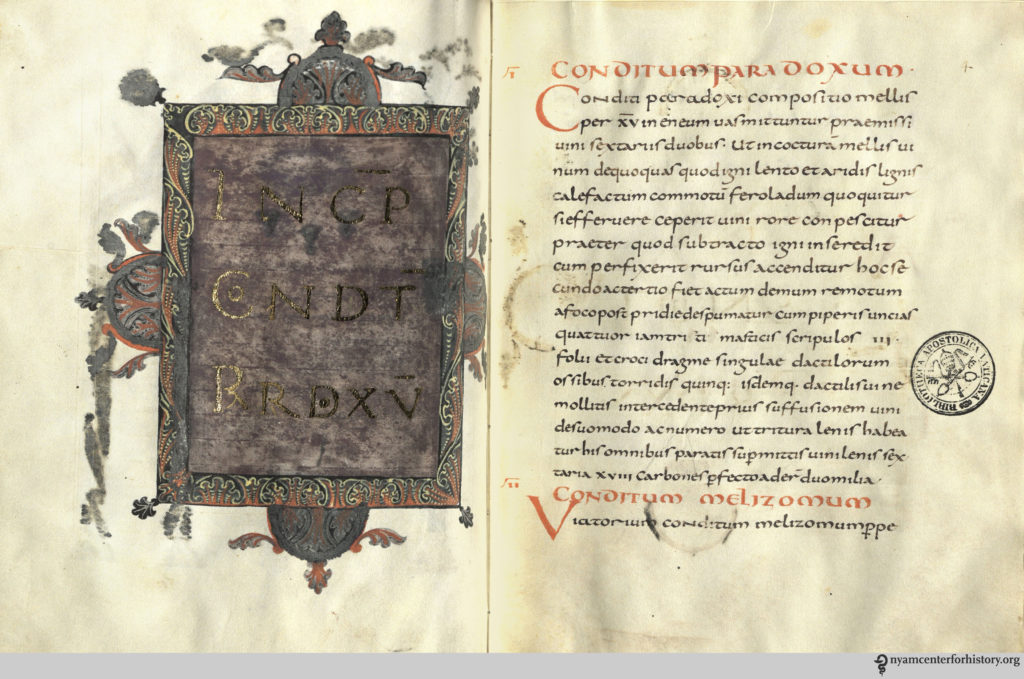 INCP
CONDT
PRDXV
I
CONDITUM PARADOXUM ·
Conditi paradoxi compositio mellis
per xv in eneum uas mittuntur praemissi
uini sextariis duobus · Ut in coctura mellis ui
num dequoquas quod igni lento et aridis lignis
calefactum commotu feroladum quoquitur
si efferuere ceperit uini rore conpescitur
praeter quod subtracto igni in se redit
cum perfixerit rursus accenditur hoc se
cundo ac tertio fiet ac tum demum remotum
a foco post pridie despumatur cum piperis uncias
quattuor iam tri ti masticis scripulos III ·
folii et croci dragme singulae dactilorum
ossibus torridis quinq: isdemq· dactilis ui ne
mollitis intercedente prius suffusionem uini
de suo modo ac numero ut tritura lenis habea
tur his omnibus paratis supmittis uini lenis sex
taria xviii carbones pfecto ader duo milia ·
II
CONDITUM MELIZOMUM
Viatorium conditum melizomum ppe
BIBLIOTHECA APOSTOLICA VATICANA
nyamcenterforhistory.org